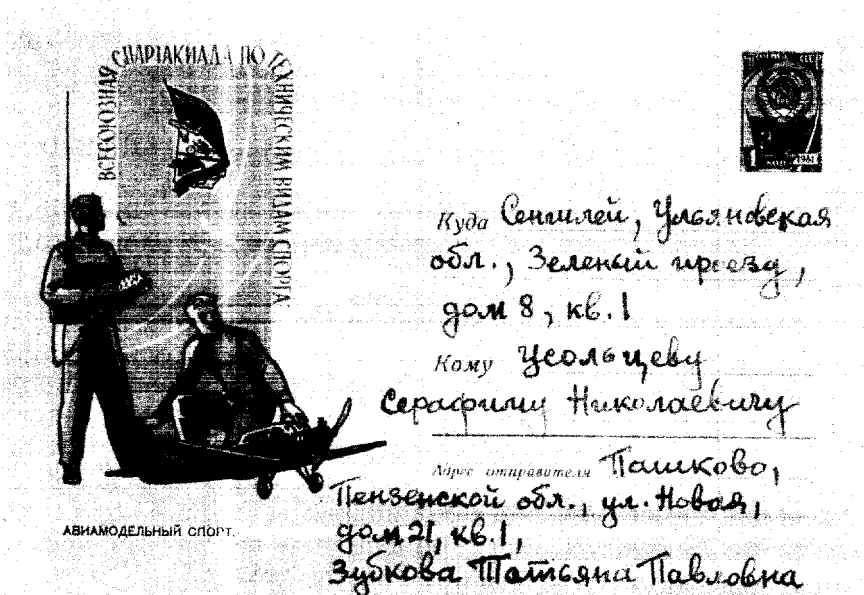 ВСЕСОЮЗНАЯ СПАРТАКИАДА ПО ТЕХНИЧЕСКИМ ВИДАМ СПОРТА
1961
Куда Сенгилей, Ульяновская
обл., Зеленый проезд,
дом 8, кв. 1
Кому Усольцеву
Серафиму Николаевичу
Адрес отправителя Пашково,
Пензенской обл., ул. Новая,
дом 21, кв. 1,
Зубкова Татьяна Павловна
АВИАМОДЕЛЬНЫЙ СПОРТ.